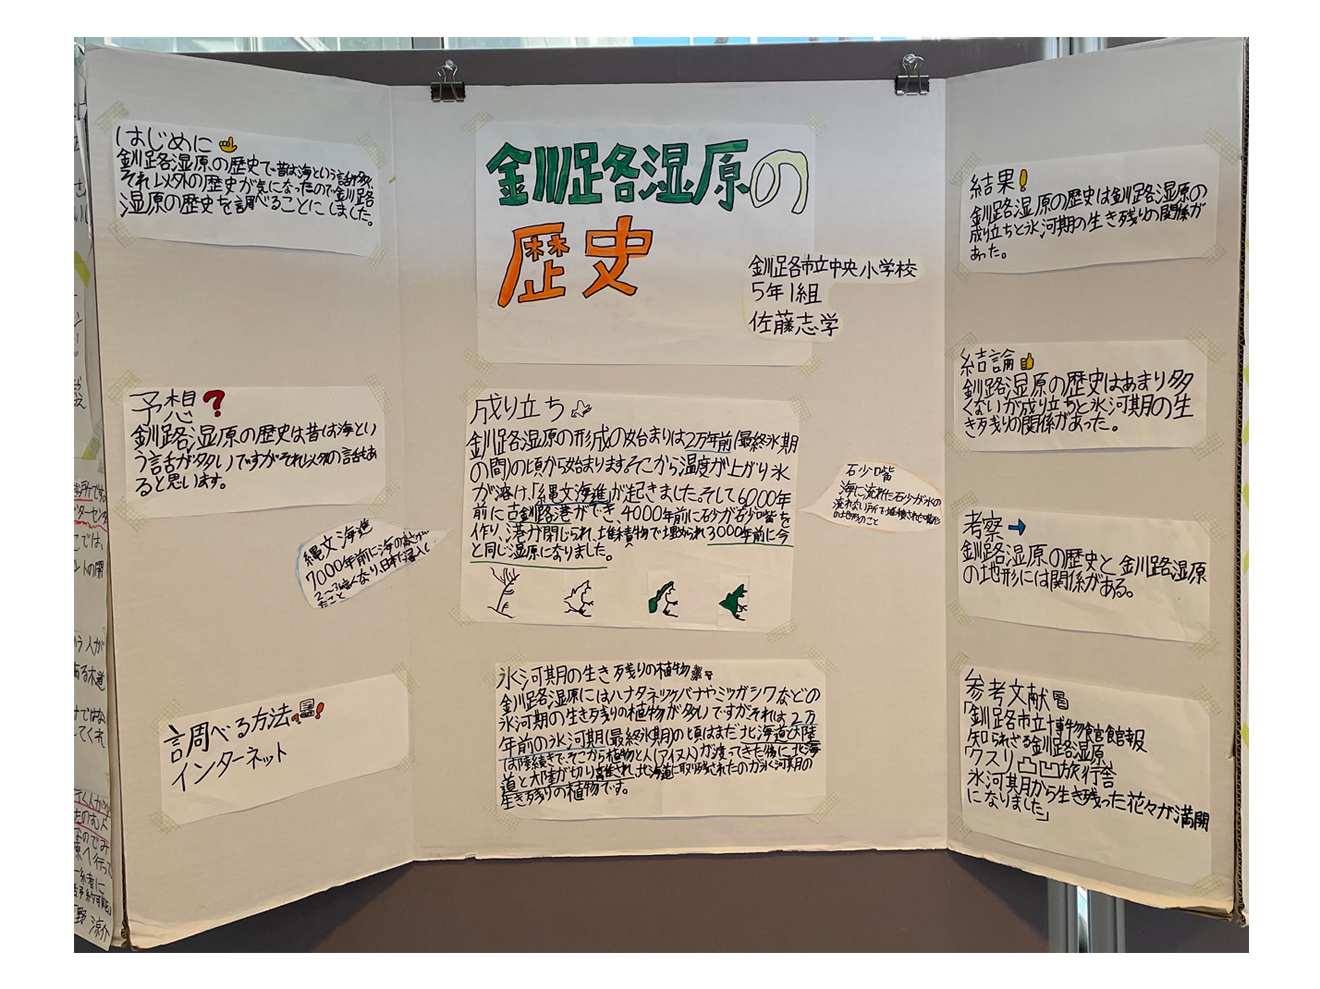 はじめに
釧路湿原の歴史で昔は海という話が多く、
それ以外の歴史が気になったので釧路
湿原の歴史を調べることにしました。
予想?
釧路湿原の歴史は昔は海とい
う話が多いですがそれ以外の話もあ
ると思います。
縄文海進
7000年前に海の
2〜3
調べる方法
インターネット
釧路湿原の
歴史
釧路市立中央小学校
5年1組
佐藤志学
成り立ち
釧路湿原の形成の始まりは2万年前(最終氷期
の間の頃から始まります。そこから温度が上がり氷
が溶け、「縄文海進」が起きました。そして6000年
前に古釧路港ができ、4000年前に石少が石少嘴を
作り、港が閉じられ、堆積物で埋められ3000年前に今
と同じ湿原になりました。
石少嘴
海に流れた石少が水の
流れない所で堆積された
の地形のこと
氷河期の生き残りの植物
釧路湿原にはハナタネツケバナやミツガシワなどの
氷河期の生き残りの植物が多いですがそれは、2万
年前の氷河期(最終氷期)の頃はまだ北海道と大陸
は陸続きで、そこから植物と人(アイヌ人)が渡ってきた後に、北海
道と大陸が切り離され、北海道に取り残されたのが氷河期の
生き残りの植物です。
結果!
釧路湿原の歴史は釧路湿原の
成り立ちと氷河期の生き残りの関係が
あった。
結論
釧路湿原の歴史はあまり多
くないが成り立ちと氷河期の生
き残りの関係があった。
考察→
釧路湿原の歴史と釧路湿原
の地形には関係がある。
参考文献
「釧路市立博物館館報
知られざる釧路湿原
ワスリ凸凹旅行舎
氷河期から生き残った花々が満開
になりました」